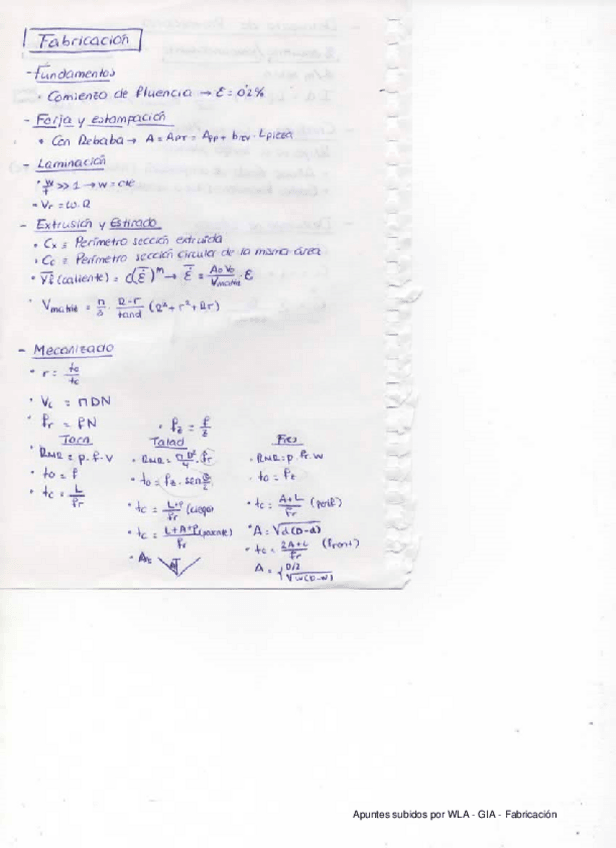 Fabricación
- Fundamentos
• Comienzo de Fluencia → ε = 0'2%
- Forja y estampación
• Con Rebaba → A = Apr = App + breb · Lpieza
- Laminación
• w/t >> 1 → w = cte
• Vr = ω·R
- Extrusión y Estirado
• Cx = Perímetro sección extruida
• Cc = Perímetro sección circular de la misma área
• Yf (caliente) = C(ε̇)^m → ε̇ = A0 V0 / Vmatriz · ε
• Vmatriz = π/3 · R-r / tanα (R² + r² + Rr)
- Mecanizado
• r = t0/tc
• Vc = πDN
• fr = fN
• fz = f/z
Torn Talad Fres
• RMR = p·f·V • RMR = πD²/4 · fr • RMR = p·fr·w
• t0 = f • t0 = fz · sen θ/2 • t0 = fz
• tc = L/fr • tc = L+P/fr (ciego) • tc = A+L/fr (perif)
• tc = L+A+P/fr (pasante) • A = √d(D-d)
• tc = 2A+L/fr (Front)
• A = A = { D/2
√w(D-w)
Apuntes subidos por WLA - GIA - Fabricación